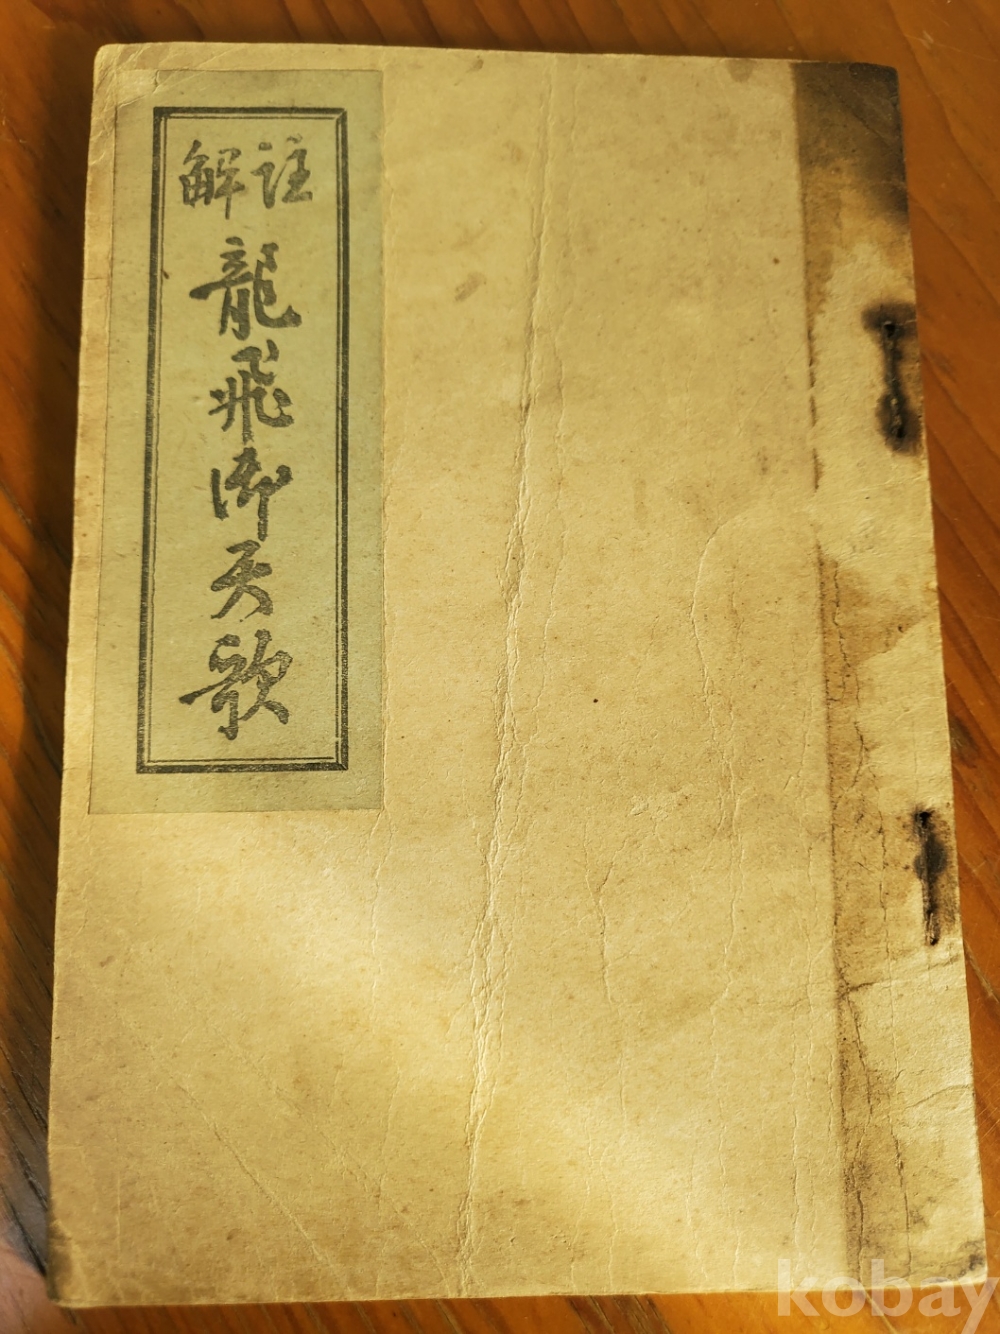 註解
龍飛御天歌
kobay